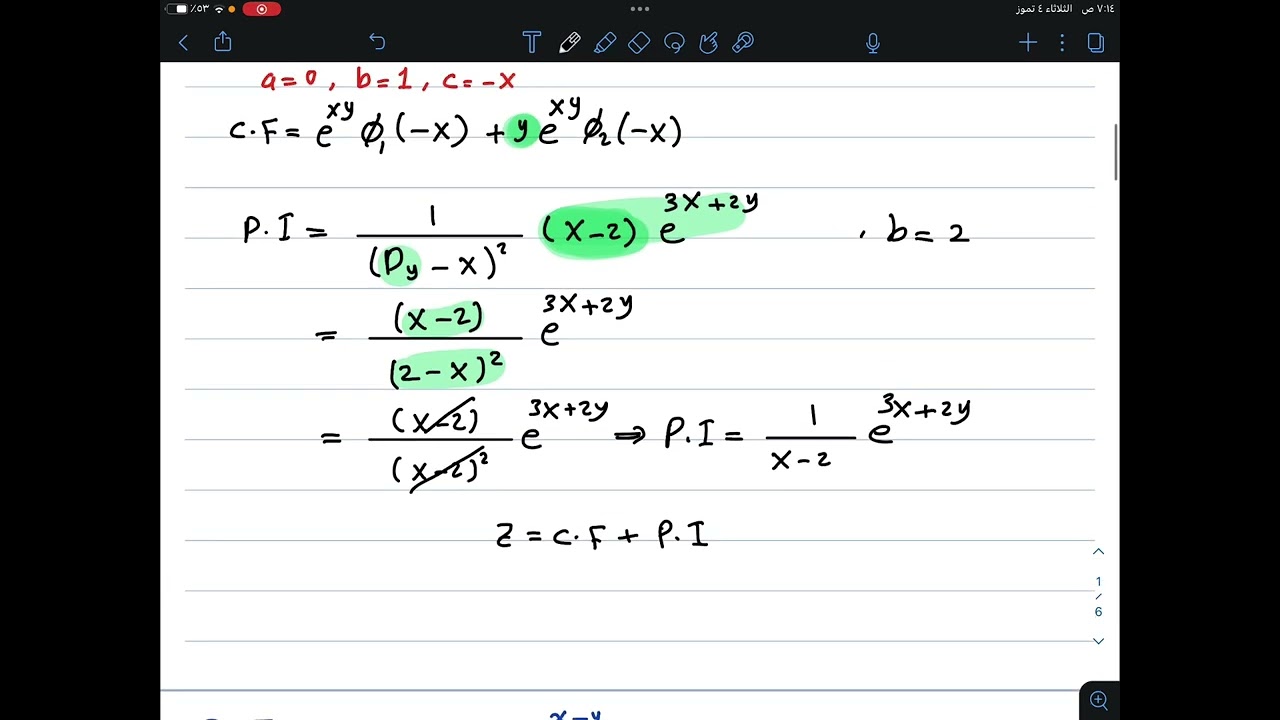 ٪٥٣ ••• ٧:١٤ ص الثلاثاء ٤ تموز
T
a=0, b=1, c=-x
C.F = e^{xy} φ₁(-x) + y e^{xy} φ₂(-x)
P.I = 1/(D_y - x)² (x-2) e^{3x+2y} , b=2
= (x-2)/(2-x)² e^{3x+2y}
= (x-2)/(x-2)² e^{3x+2y} ⇒ P.I = 1/(x-2) e^{3x+2y}
Z = C.F + P.I
1
/
6
x-y